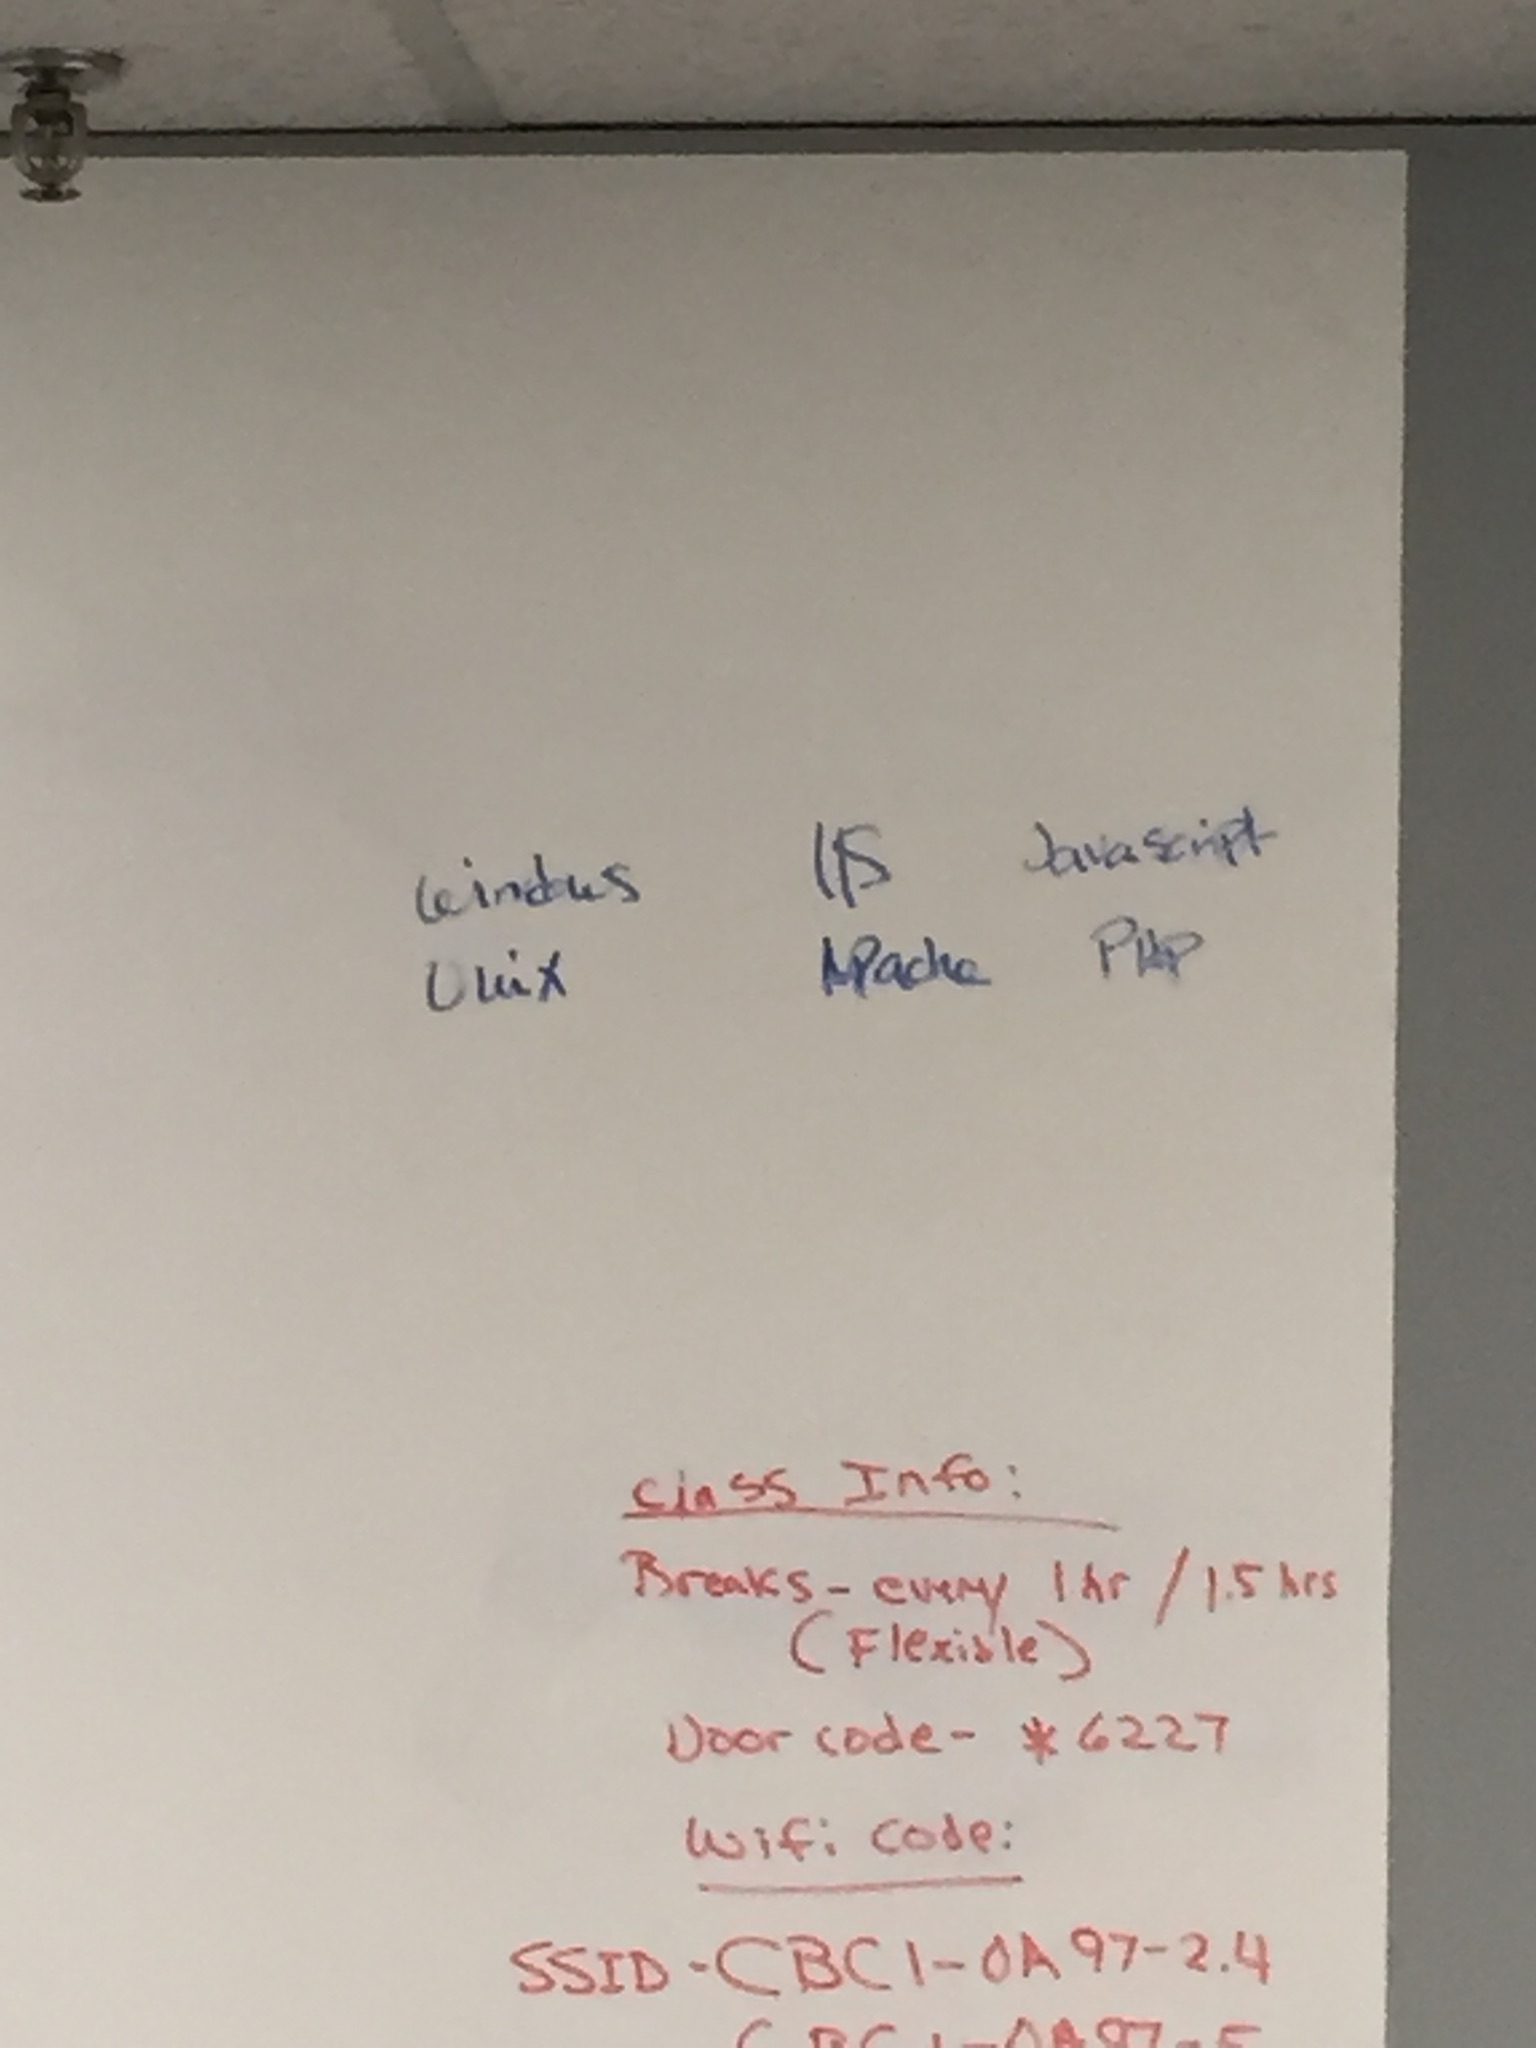 Windows IIS Javascript
Unix APache PHP
Class Info:
Breaks - every 1 hr / 1.5 hrs
(Flexible)
Door code - *6227
Wifi code:
SSID - CBC1-0A97-2.4
CBC1-0A97-5